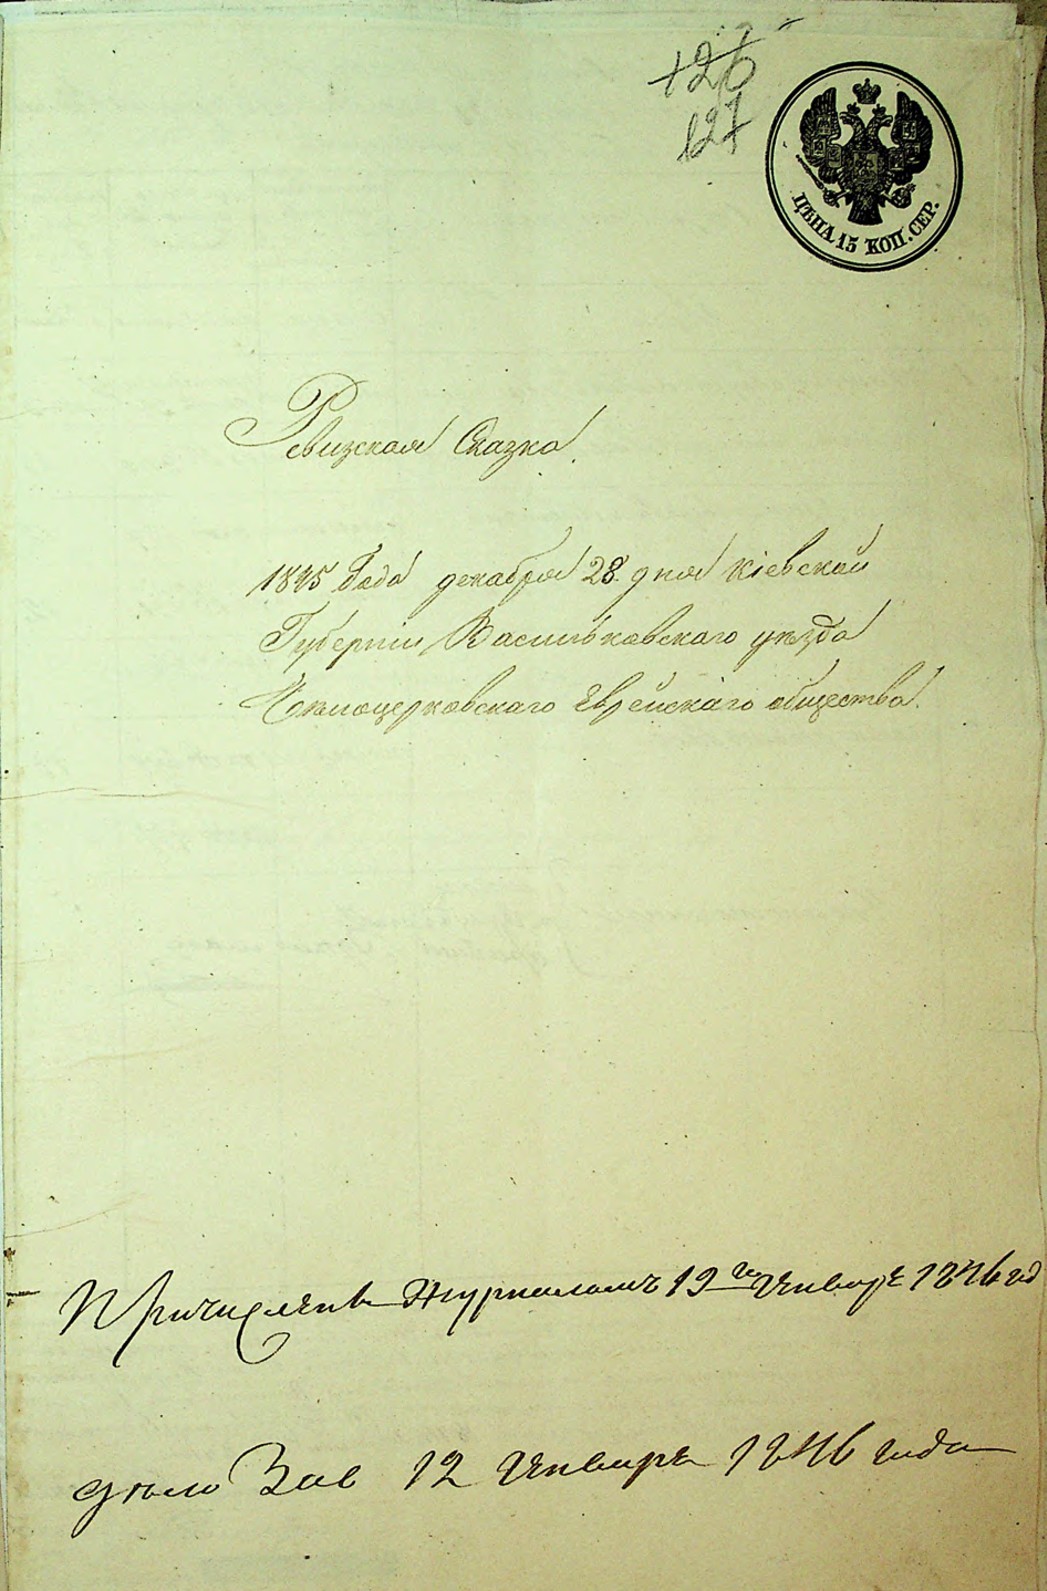 126
127
ЦѢНА 15 КОП. СЕР.
Ревизская Сказка.
1845 Года декабря 28 дня Кіевской
Губерніи Васильковскаго уѣзда
Бѣлоцерковскаго Еврейскаго общества.
Причисленъ Журналомъ 19 Генваря 1846 год
дѣло Зав 12 Генваря 1846 года